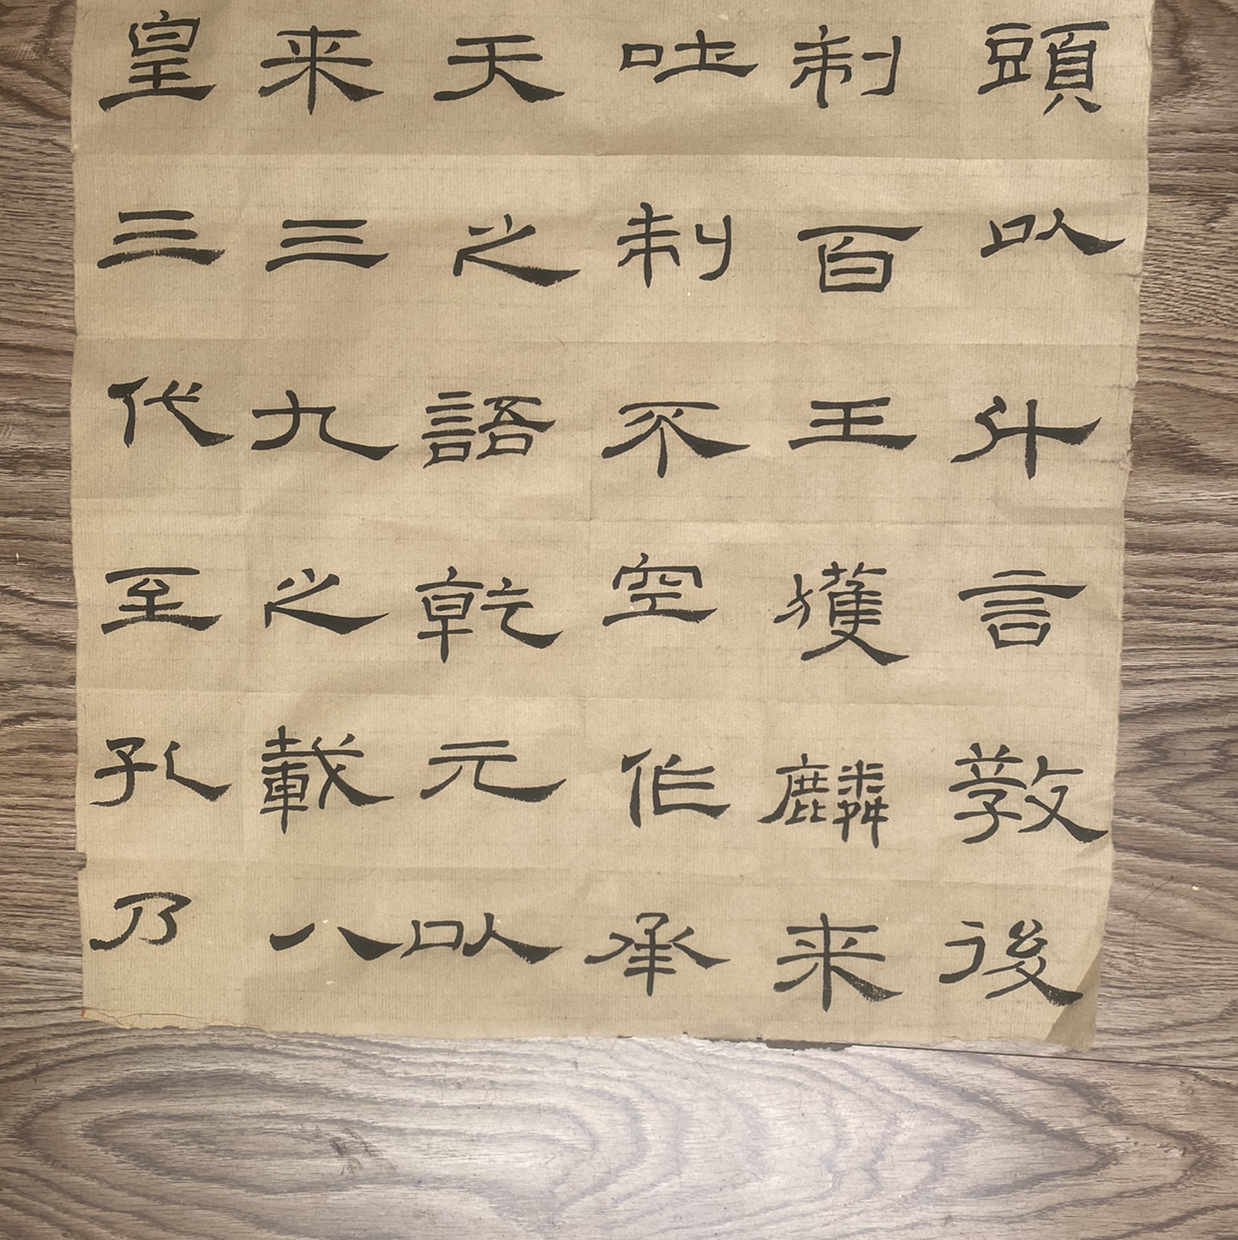 頭以斗言教後
制百王獲麟来
吐制不空作承
天之語乾元以
来三九之載八
皇三代至孔乃